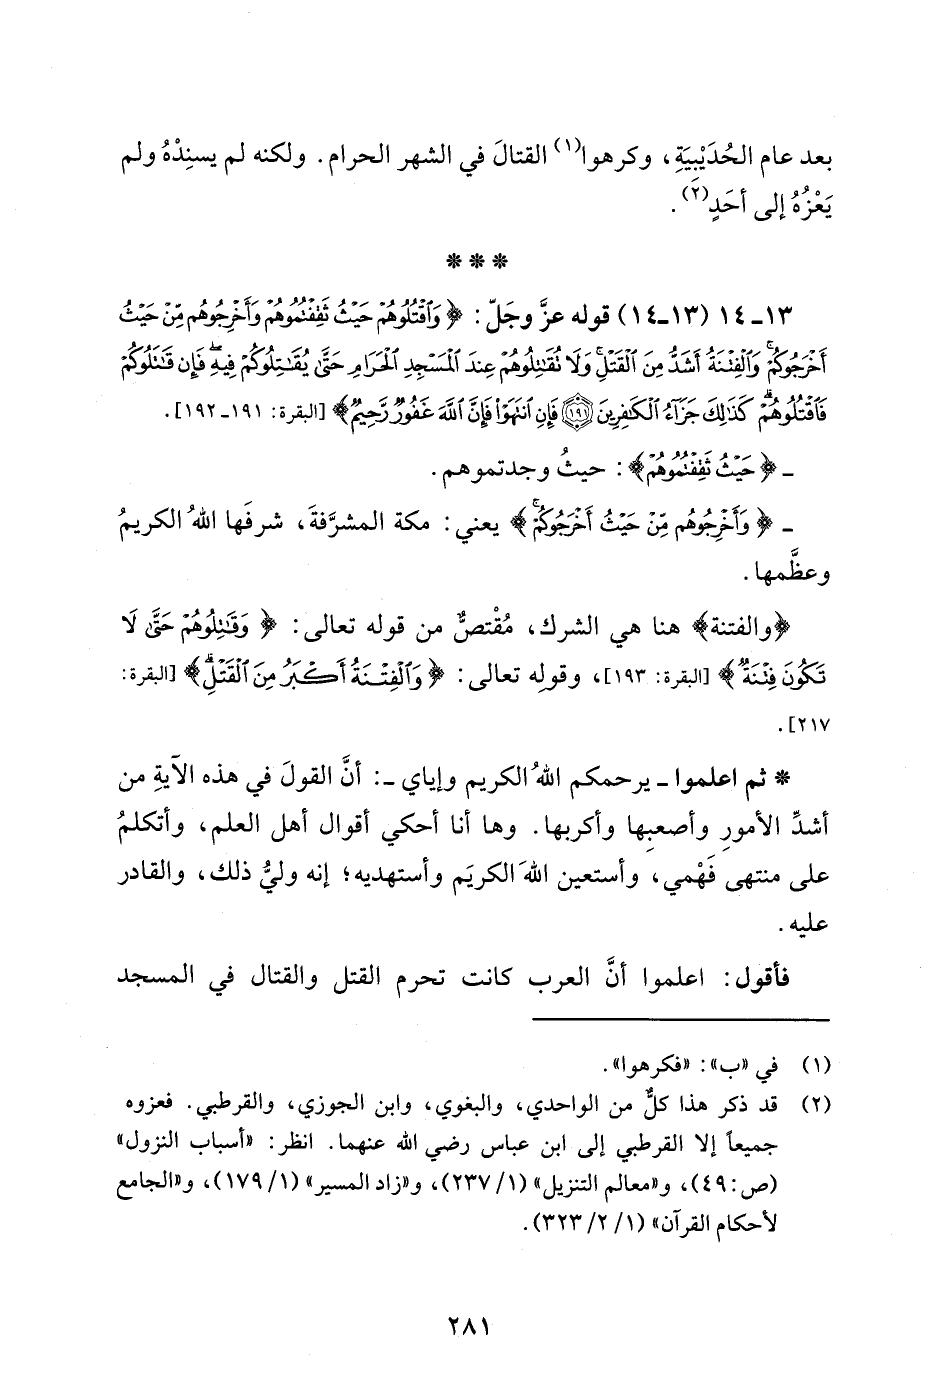 بعد عام الحُدَيْبيَةِ، وكرهوا(١) القتالَ في الشهر الحرام. ولكنه لم يسنِدْهُ ولم
يَعْزُهُ إلى أحَدٍ(٢).
* * *
١٣ـ١٤ (١٣ـ١٤) قوله عزَّ وجَلّ: ﴿وَٱقۡتُلُوهُمۡ حَيۡثُ ثَقِفۡتُمُوهُمۡ وَأَخۡرِجُوهُم مِّنۡ حَيۡثُ
أَخۡرَجُوكُمۡۚ وَٱلۡفِتۡنَةُ أَشَدُّ مِنَ ٱلۡقَتۡلِۚ وَلَا تُقَٰتِلُوهُمۡ عِندَ ٱلۡمَسۡجِدِ ٱلۡحَرَامِ حَتَّىٰ يُقَٰتِلُوكُمۡ فِيهِۖ فَإِن قَٰتَلُوكُمۡ
فَٱقۡتُلُوهُمۡۗ كَذَٰلِكَ جَزَآءُ ٱلۡكَٰفِرِينَ ١٩١ فَإِنِ ٱنتَهَوۡاْ فَإِنَّ ٱللَّهَ غَفُورٞ رَّحِيمٞ﴾ [البقرة: ١٩١ـ١٩٢].
ـ ﴿حَيۡثُ ثَقِفۡتُمُوهُمۡ﴾: حيثُ وجدتموهم.
ـ ﴿وَأَخۡرِجُوهُم مِّنۡ حَيۡثُ أَخۡرَجُوكُمۡۚ﴾ يعني: مكة المشرَّفةَ، شرفَها اللهُ الكريمُ
وعظَّمها.
﴿والفتنة﴾ هنا هي الشرك، مُقْتصٌّ من قوله تعالى: ﴿وَقَٰتِلُوهُمۡ حَتَّىٰ لَا
تَكُونَ فِتۡنَةٞ﴾ [البقرة: ١٩٣]، وقولِه تعالى: ﴿وَٱلۡفِتۡنَةُ أَكۡبَرُ مِنَ ٱلۡقَتۡلِۗ﴾ [البقرة:
٢١٧].
* ثم اعلموا ـ يرحمكم اللهُ الكريم وإياي ـ: أنَّ القولَ في هذه الآيةِ من
أشدِّ الأمورِ وأصعبِها وأكربها. وها أنا أحكي أقوال أهل العلم، وأتكلمُ
على منتهى فَهْمي، وأستعين اللهَ الكريَم وأستهديه؛ إنه وليُّ ذلك، والقادر
عليه.
فأقول: اعلموا أنَّ العرب كانت تحرم القتل والقتال في المسجد
(١) في «ب»: «فكرهوا».
(٢) قد ذكر هذا كلٌّ من الواحدي، والبغوي، وابن الجوزي، والقرطبي. فعزوه
جميعاً إلا القرطبي إلى ابن عباس رضي الله عنهما. انظر: «أسباب النزول»
(ص:٤٩)، و«معالم التنزيل» (١/ ٢٣٧)، و«زاد المسير» (١/ ١٧٩)، و«الجامع
لأحكام القرآن» (١/ ٢/ ٣٢٣).
٢٨١